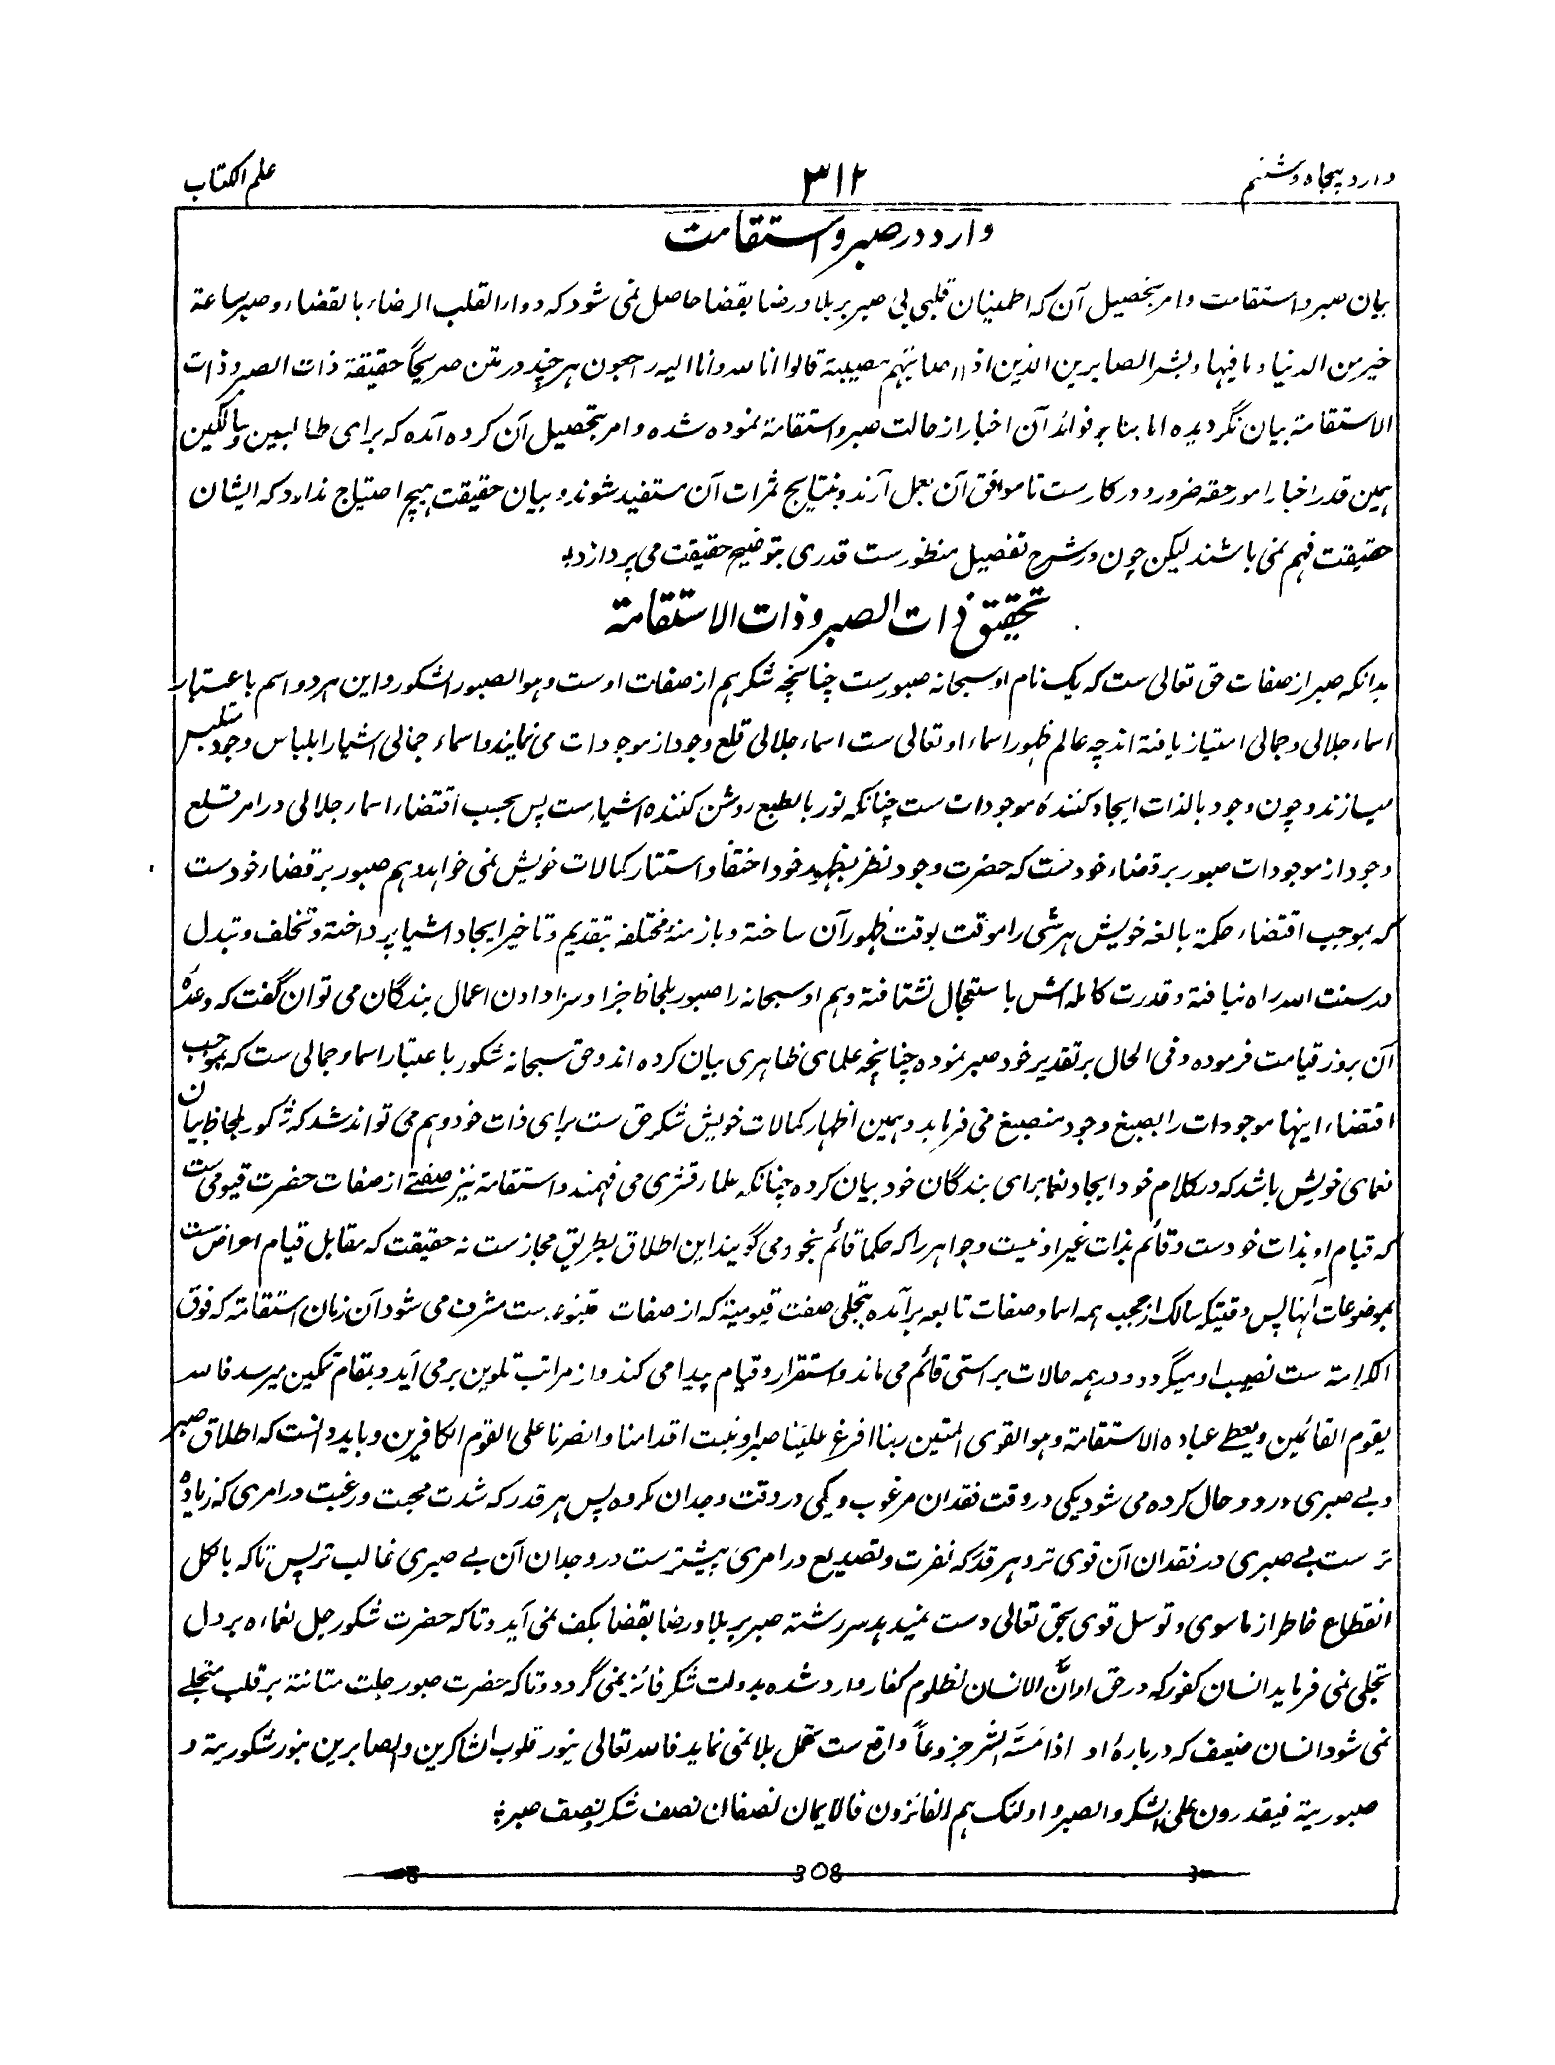 وارد پنجاه و ششم
۳۱۲
علم الکتاب
وارد در صبر و استقامت
بیان صبر و استقامت و امر بتحصیل آن که اطمینان قلبی بی صبر بر بلا و رضا بقضا حاصل نمی شود که دواء القلب الرضاء بالقضاء و صبر ساعة
خیر من الدنیا و ما فیها و بشر الصابرین الذین اذا اصابتهم مصیبة قالوا انا لله وانا الیه راجعون هر چند در متن صریحاً حقیقة ذات الصبر و ذات
الاستقامة بیان نگردیده اما بنا بر فوائد آن اخبار از حالت صبر و استقامة نموده شده و امر بتحصیل آن کرده آمده که برای طالبین و سالکین
همین قدر اخبار امور حقه ضرور و در کار ست تا موافق آن بعمل آرند و بنتایج ثمرات آن مستفید شوند و بیان حقیقت هیچ احتیاج ندارد که ایشان
حقیقت فهم نمی باشند لیکن چون در شرح تفصیل منظور ست قدری بتوضیح حقیقت می پردازد
تحقیق ذات الصبر و ذات الاستقامة
بدانکه صبر از صفات حق تعالی ست که یک نام او سبحانه صبور ست چنانچه شکر هم از صفات اوست و هو الصبور الشکور و این هر دو اسم باعتبار
اسماء جلالی و جمالی امتیاز یافته اند چه عالم ظهور اسماء او تعالی ست اسماء جلالی قلع وجود از موجودات می نمایند و اسماء جمالی اشیا را بلباس وجود متلبس
میسازند و چون وجود بالذات ایجاد کنندهٔ موجودات ست چنانکه نور بالطبع روشن کننده اشیاست پس بحسب اقتضاء اسماء جلالی در امر قلع
وجود از موجودات صبور بر قضاء خودست که حضرت وجود نظر بظهور خود اختفا و استتار کمالات خویش نمی خواهد و هم صبور بر قضاء خودست
که بموجب اقتضاء حکمة بالغه خویش هر شی را موقت بوقت ظهور آن ساخته و بازمنهٔ مختلفه بتقدیم و تاخیر ایجاد اشیا پرداخته و تخلف و تبدل
در سنت الله راه نیافته و قدرت کامله اش باستعجال نشتافته و هم او سبحانه را صبور بلحاظ جزا و سزا دادن اعمال بندگان می توان گفت که وعدهٔ
آن بروز قیامت فرموده و فی الحال بر تقدیر خود صبر نموده چنانچه علمای ظاهری بیان کرده اند و حق سبحانه شکور باعتبار اسماء جمالی ست که بموجب
اقتضاء اینها موجودات را بصبغ وجود منصبغ می فرماید و همین اظهار کمالات خویش شکر حق ست برای ذات خود و هم می تواند شد که شکور بلحاظ بیان
نعمای خویش باشد که در کلام خود ایجاد نعما برای بندگان خود بیان کرده چنانکه علماء قشری می فهمند و استقامة نیز صفتے از صفات حضرت قیومی ست
که قیام او بذات خودست و قائم بذات غیر او نیست و جواهر را که حکما قائم بخود می گویند این اطلاق بطریق مجاز ست نه حقیقت که مقابل قیام اعراض ست
بموضوعات آنها پس وقتیکه سالک از حجب همه اسما و صفات تابعه برآمده بتجلی صفت قیومیة که از صفات متبوعه ست مشرف می شود آن زمان استقامة که فوق
الکرامة ست نصیب او میگردد و در همه حالات براستی قائم می ماند و استقرار و قیام پیدا می کند و از مراتب تلوین برمی آید و بمقام تمکین میرسد فالله
یقوم القائمین و یعطے عباده الاستقامة و هو القوی المتین ربنا افرغ علینا صبرا و ثبت اقدامنا وانصرنا علی القوم الکافرین و باید دانست که اطلاق صبر
و بے صبری در دو حال کرده می شود یکی در وقت فقدان مرغوب و یکی در وقت وجدان مکروه پس هر قدر که شدت محبت و رغبت در امری که زیاده
تر ست بے صبری در فقدان آن قوی تر و هر قدر که نفرت و تصدیع در امری بیشتر ست در وجدان آن بے صبری غالب تر پس تا که بالکل
انقطاع خاطر از ماسوی و توسل قوی بحق تعالی دست نمیدهد سر رشته صبر بر بلا و رضا بقضا بکف نمی آید و تا که حضرت شکور جل نعماءه بر دل
تجلی نمی فرماید انسان کفور که در حق او انّ الانسان لظلوم کفار وارد شده بدولت شکر فائز نمی گردد و تا که حضرت صبور جلت متانته بر قلب متجلے
نمی شود انسان ضعیف که دربارهٔ او اذا مسّه الشر جزوعاً واقع ست تحمل بلا نمی نماید فالله تعالی ینور قلوب الشاکرین والصابرین بنور شکوریة و
صبوریة فیقدرون علی الشکر و الصبر و اولئک هم الفائزون فالایمان نصفان نصف شکر و نصف صبر
308